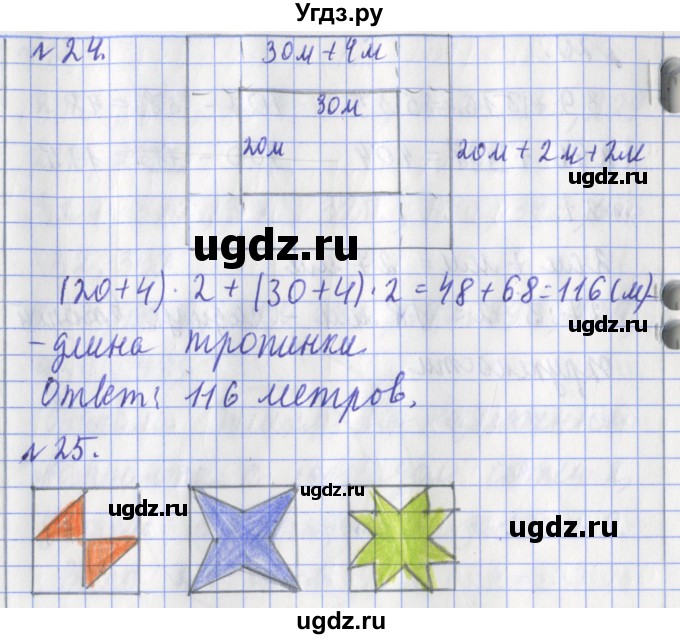 Угдз.ру
№ 24.
30м + 4м
30м
20м
20м + 2м + 2м
ugdz.ru
ugdz.ru
(20+4) · 2 + (30+4) · 2 = 48 + 68 = 116 (м)
- длина тропинки.
ugdz.ru
Ответ: 116 метров.
ugdz.ru
№ 25.
ugdz.ru
ugdz.ru
ugdz.ru
ugdz.ru